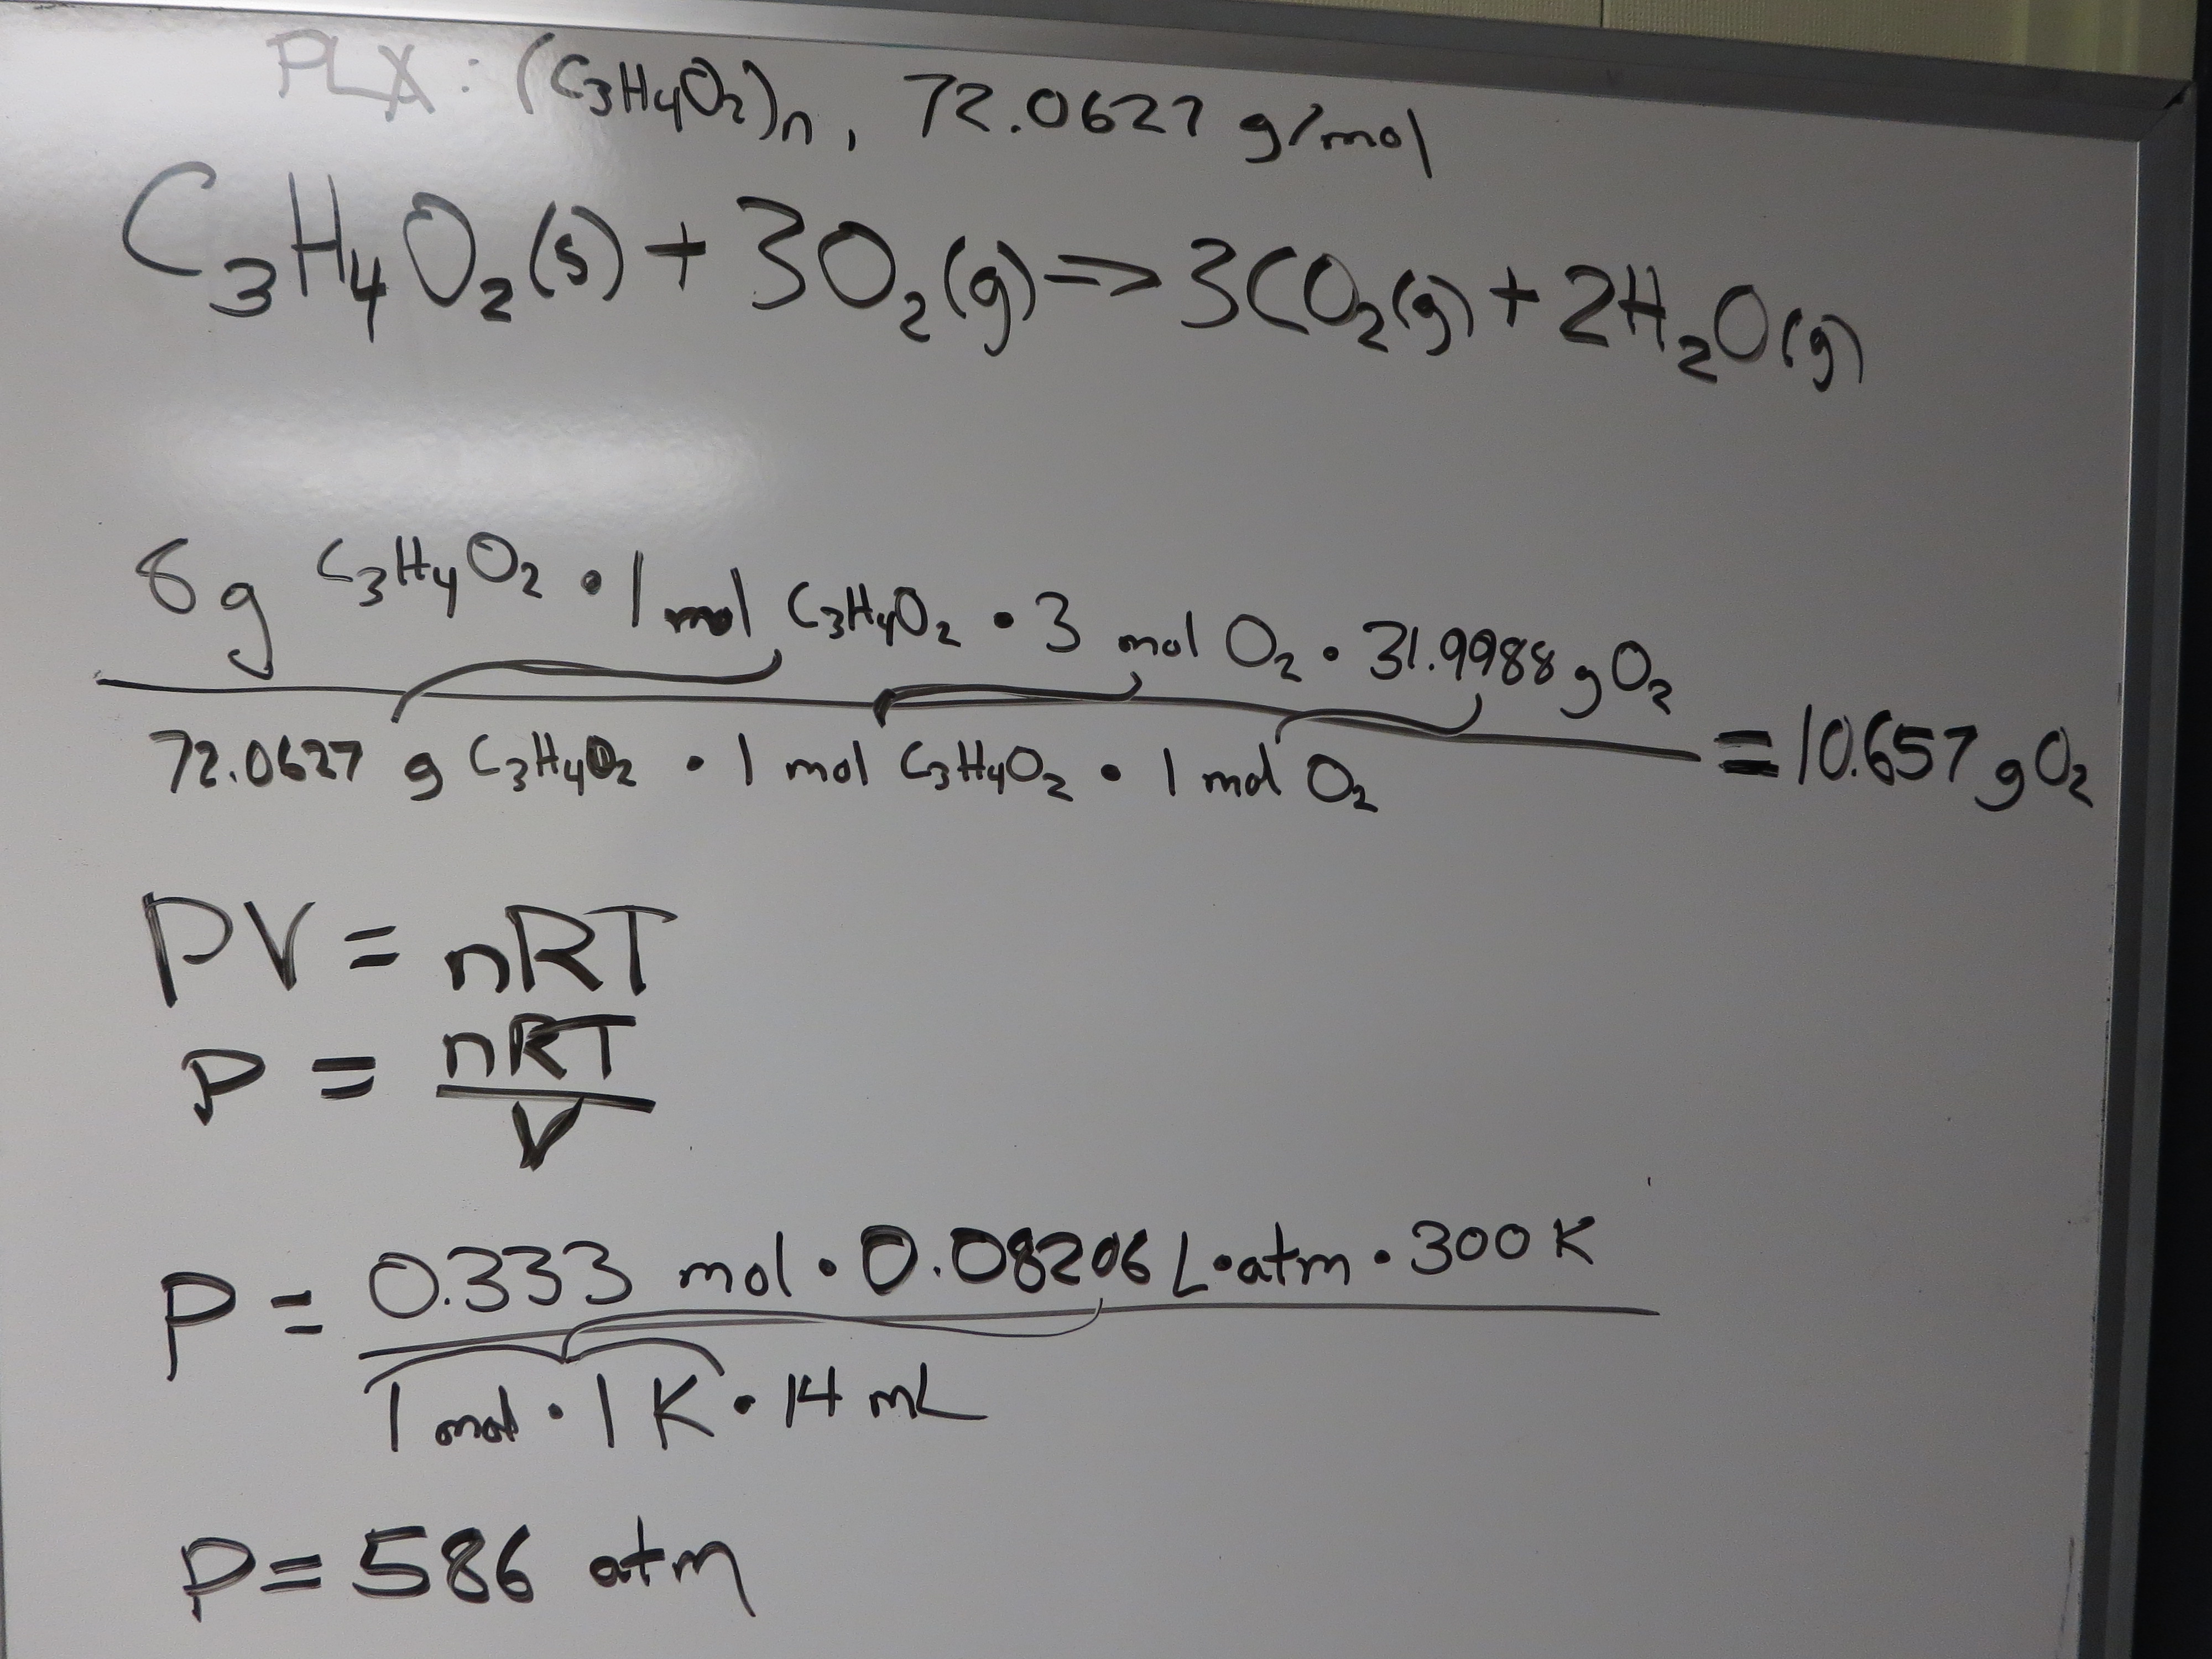 PLA : (C₃H₄O₂)n, 72.0627 g/mol
C₃H₄O₂(s) + 3O₂(g) => 3CO₂(g) + 2H₂O(g)
8g C₃H₄O₂ • 1 mol C₃H₄O₂ • 3 mol O₂ • 31.9988 g O₂
72.0627 g C₃H₄O₂ • 1 mol C₃H₄O₂ • 1 mol O₂
= 10.657 g O₂
PV = nRT
P = nRT
V
P = 0.333 mol • 0.08206 L•atm • 300 K
1 mol • 1 K • 14 mL
P = 586 atm